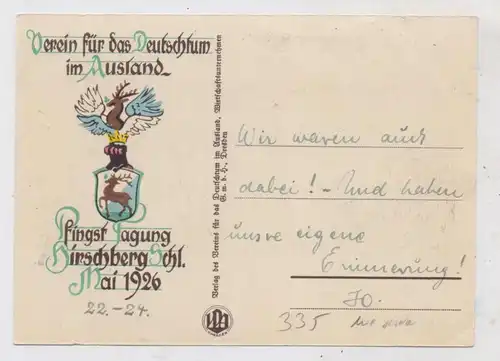 Verein für das Deutschtum
im Ausland
Pfingst Tagung
Hirschberg Schl.
Mai 1926
22.-24.
Verlag des Vereins für das Deutschtum im Ausland, Wirtschaftsunternehmen
G. m. b. H., Dresden
Wir waren auch
dabei! - Und haben
unsre eigene
Erinnerung!
Jo.
335